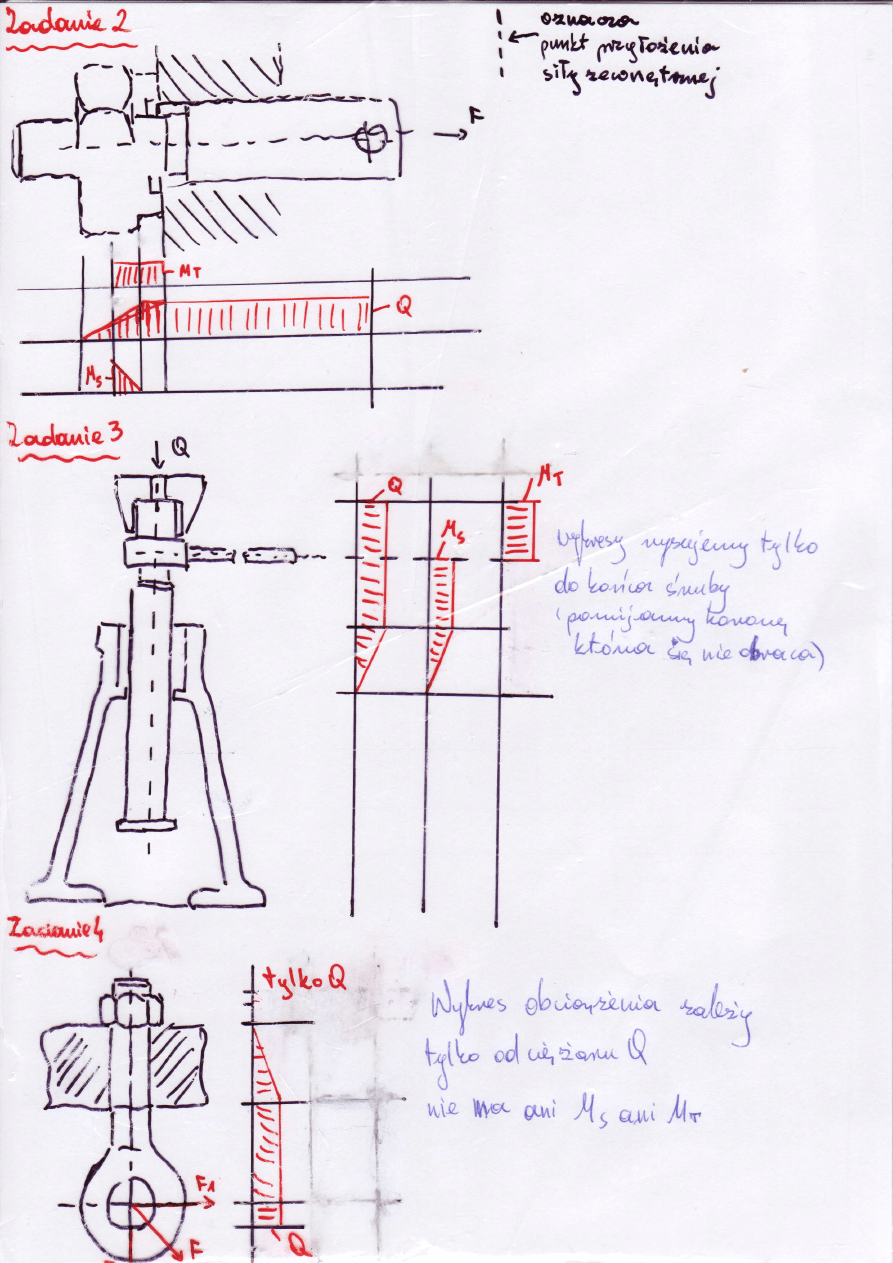 Zadanie 2
oznacza
punkt przyłożenia
siły zewnętrznej
F
MT
Q
Ms
Zadanie 3
Q
Q
Ms
MT
wykresy rysujemy tylko
do końca śruby
(pomijamy koronę
która się nie obraca)
Zadanie 4
tylko Q
Wykres obciążenia zależy
tylko od ciężaru Q
nie ma ani Ms ani MT
F1
F
Q